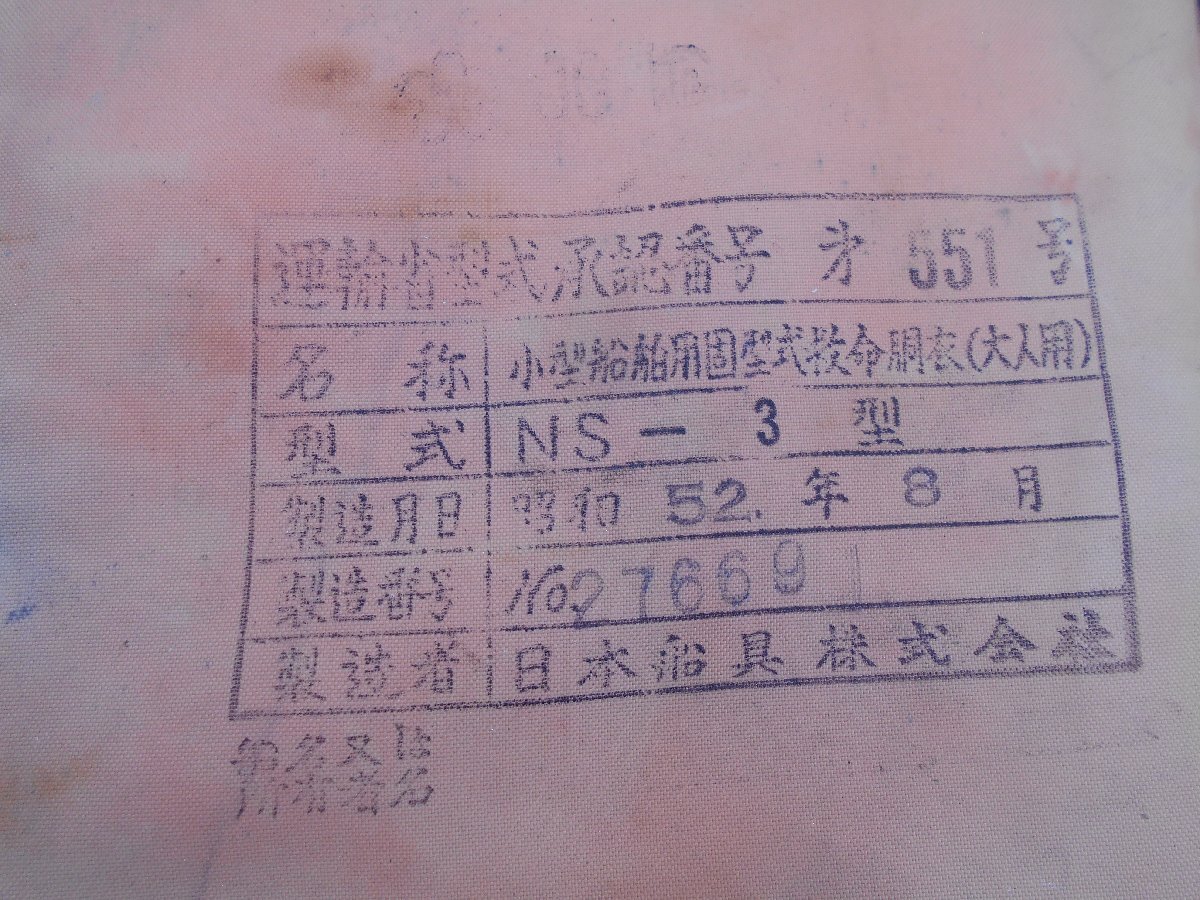 運輸省型式承認番号 第 551 号
名 称 小型船舶用固型式救命胴衣(大人用)
型 式 NS - 3 型
製造月日 昭和 52. 年 8 月
製造番号 No. 27669
製造者 日本船具株式会社
船名又は
所有者名